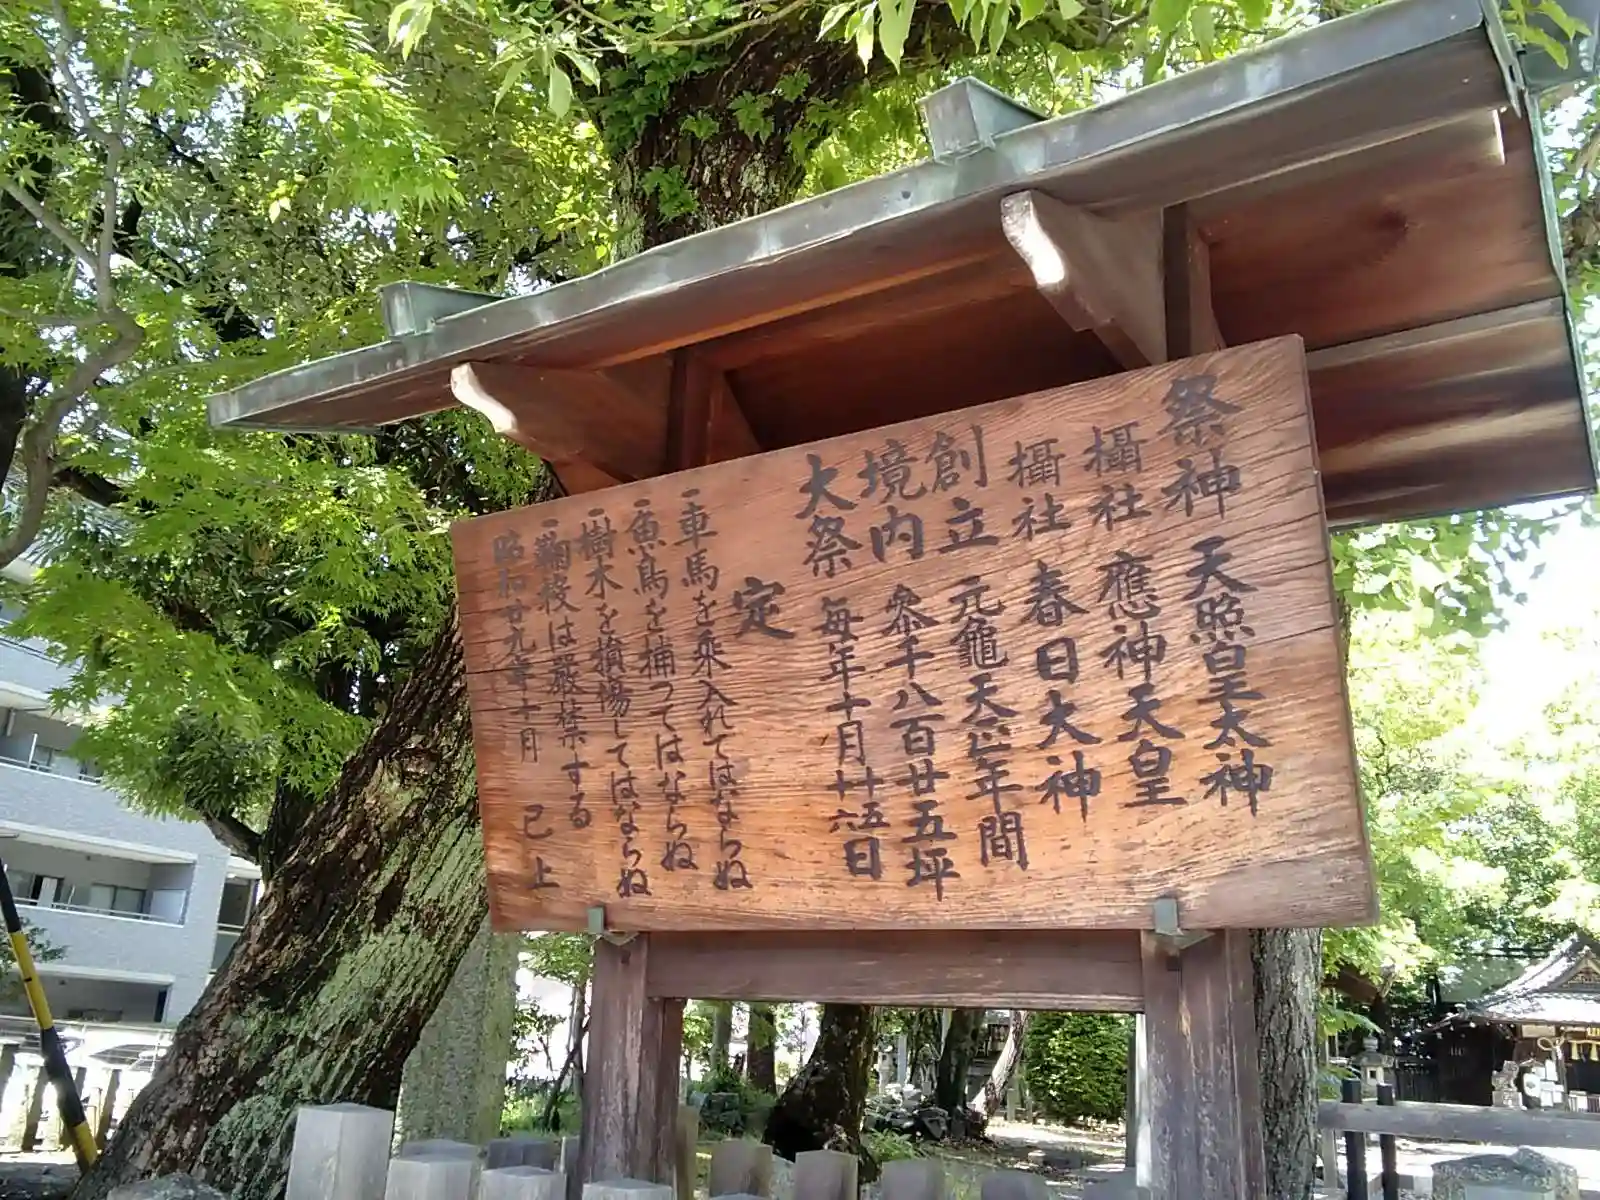 祭神 天照皇太神
攝社 應神天皇
攝社 春日大神
創立 元龜天正年間
境内 參千八百廿五坪
大祭 毎年十月十五日十六日
定
一車馬を乗入れてはならぬ
一魚鳥を捕つてはならぬ
一樹木を損傷してはならぬ
一鞠投は嚴禁する
昭和廿九年十月 已上